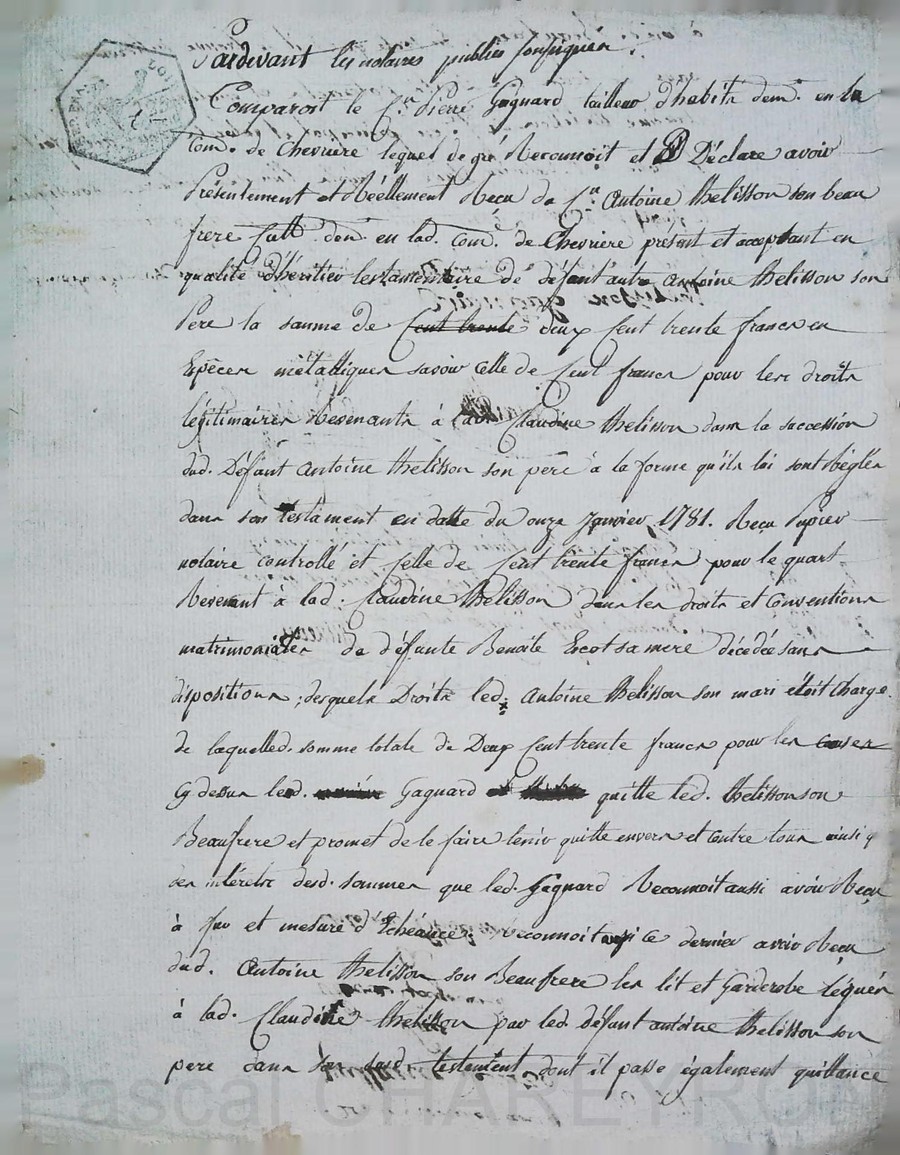 Pardevant les notaires publics soussignés.
Comparoit le Sr. Pierre Gagnard tailleur d'habits demt. en la
Come. de Chevriere lequel de gré Reconnoit et Déclare avoir
Présentement et Réellement Reçu de Sr. Antoine thelisson son beau
frere demt. en lad. Come. de Chevriere présent et acceptant en
qualité d'héritier testamentaire de défant autre antoine thelisson son
Pere la somme de Cent trente deux Cent trente francs en
Espèces métalliques savoir Celle de Cent francs pour les droits
légitimaires Revenants à Claudine thelisson dans la succession
dud. Défant antoine thelisson son père à la forme qu'ils lui sont Réglés
dans son testament en datte du onze Janvier 1781. Reçu Pupier
notaire controllé et Celle de Cent trente francs pour le quart
Revenant à lad. Claudine thelisson dans les droits et Conventions
matrimoniales de défante Benoite Escot sa mere décédée sans
dispositions, desquels Droits led. Antoine thelisson son mari étoit Chargé.
de laquelle d. somme totale de Deux Cent trente francs pour les causes
Cy dessus led. Gagnard quitte led. thelisson son
Beaufrere et promet de le faire tenir quitte envers et Contre tous ainsi q
des intérets desd. sommes que led. Gagnard Reconnoit aussi avoir Reçu
à fur et mesure d'Echéance. reconnoit aussi ce dernier avoir Reçu
dud. Antoine thelisson son Beaufrere les lit et Garderobe légués
à lad. Claudine thelisson par led. défant antoine thelisson son
pere dans son susd. testament dont il passe également quittance
Pascal CHAREYRON